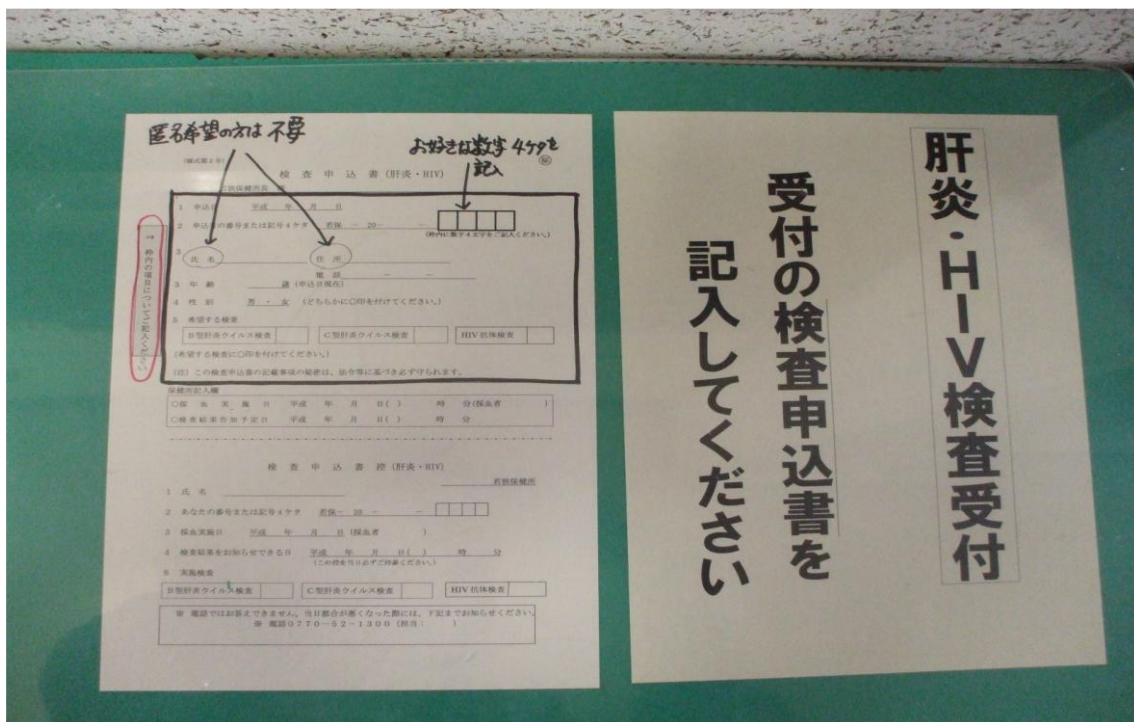 匿名希望の方は 不要
お好きな数字 4ケタを
記入
(様式第2号)
検 査 申 込 書 (肝炎・HIV)
若狭保健所長 様
1 申込日 平成 年 月 日
2 申込者の番号または記号4ケタ 若保 - 20- -
(枠内に数字4文字をご記入ください。)
3 氏 名 住 所
電 話 - -
3 年 齢 歳 (申込日現在)
4 性 別 男 ・ 女 (どちらかに〇印を付けてください。)
5 希望する検査
B型肝炎ウイルス検査 C型肝炎ウイルス検査 HIV抗体検査
(希望する検査に〇印を付けてください。)
(注) この検査申込書の記載事項の秘密は、法令等に基づき必ず守られます。
枠内の項目についてご記入ください
保健所記入欄
〇採 血 実 施 日 平成 年 月 日( ) 時 分(採血者 )
〇検査結果告知予定日 平成 年 月 日( ) 時 分
検 査 申 込 書 控 (肝炎・HIV)
若狭保健所
1 氏 名
2 あなたの番号または記号4ケタ 若保- 20 - -
3 採血実施日 平成 年 月 日 (採血者 )
4 検査結果をお知らせできる日 平成 年 月 日( ) 時 分
(この控を当日必ずご持参ください。)
5 実施検査
B型肝炎ウイルス検査 C型肝炎ウイルス検査 HIV抗体検査
※ 電話ではお答えできません。当日都合が悪くなった際には、下記までお知らせください。
※ 電話0770-52-1300 (担当: )
肝炎・HIV検査受付
受付の検査申込書を
記入してください